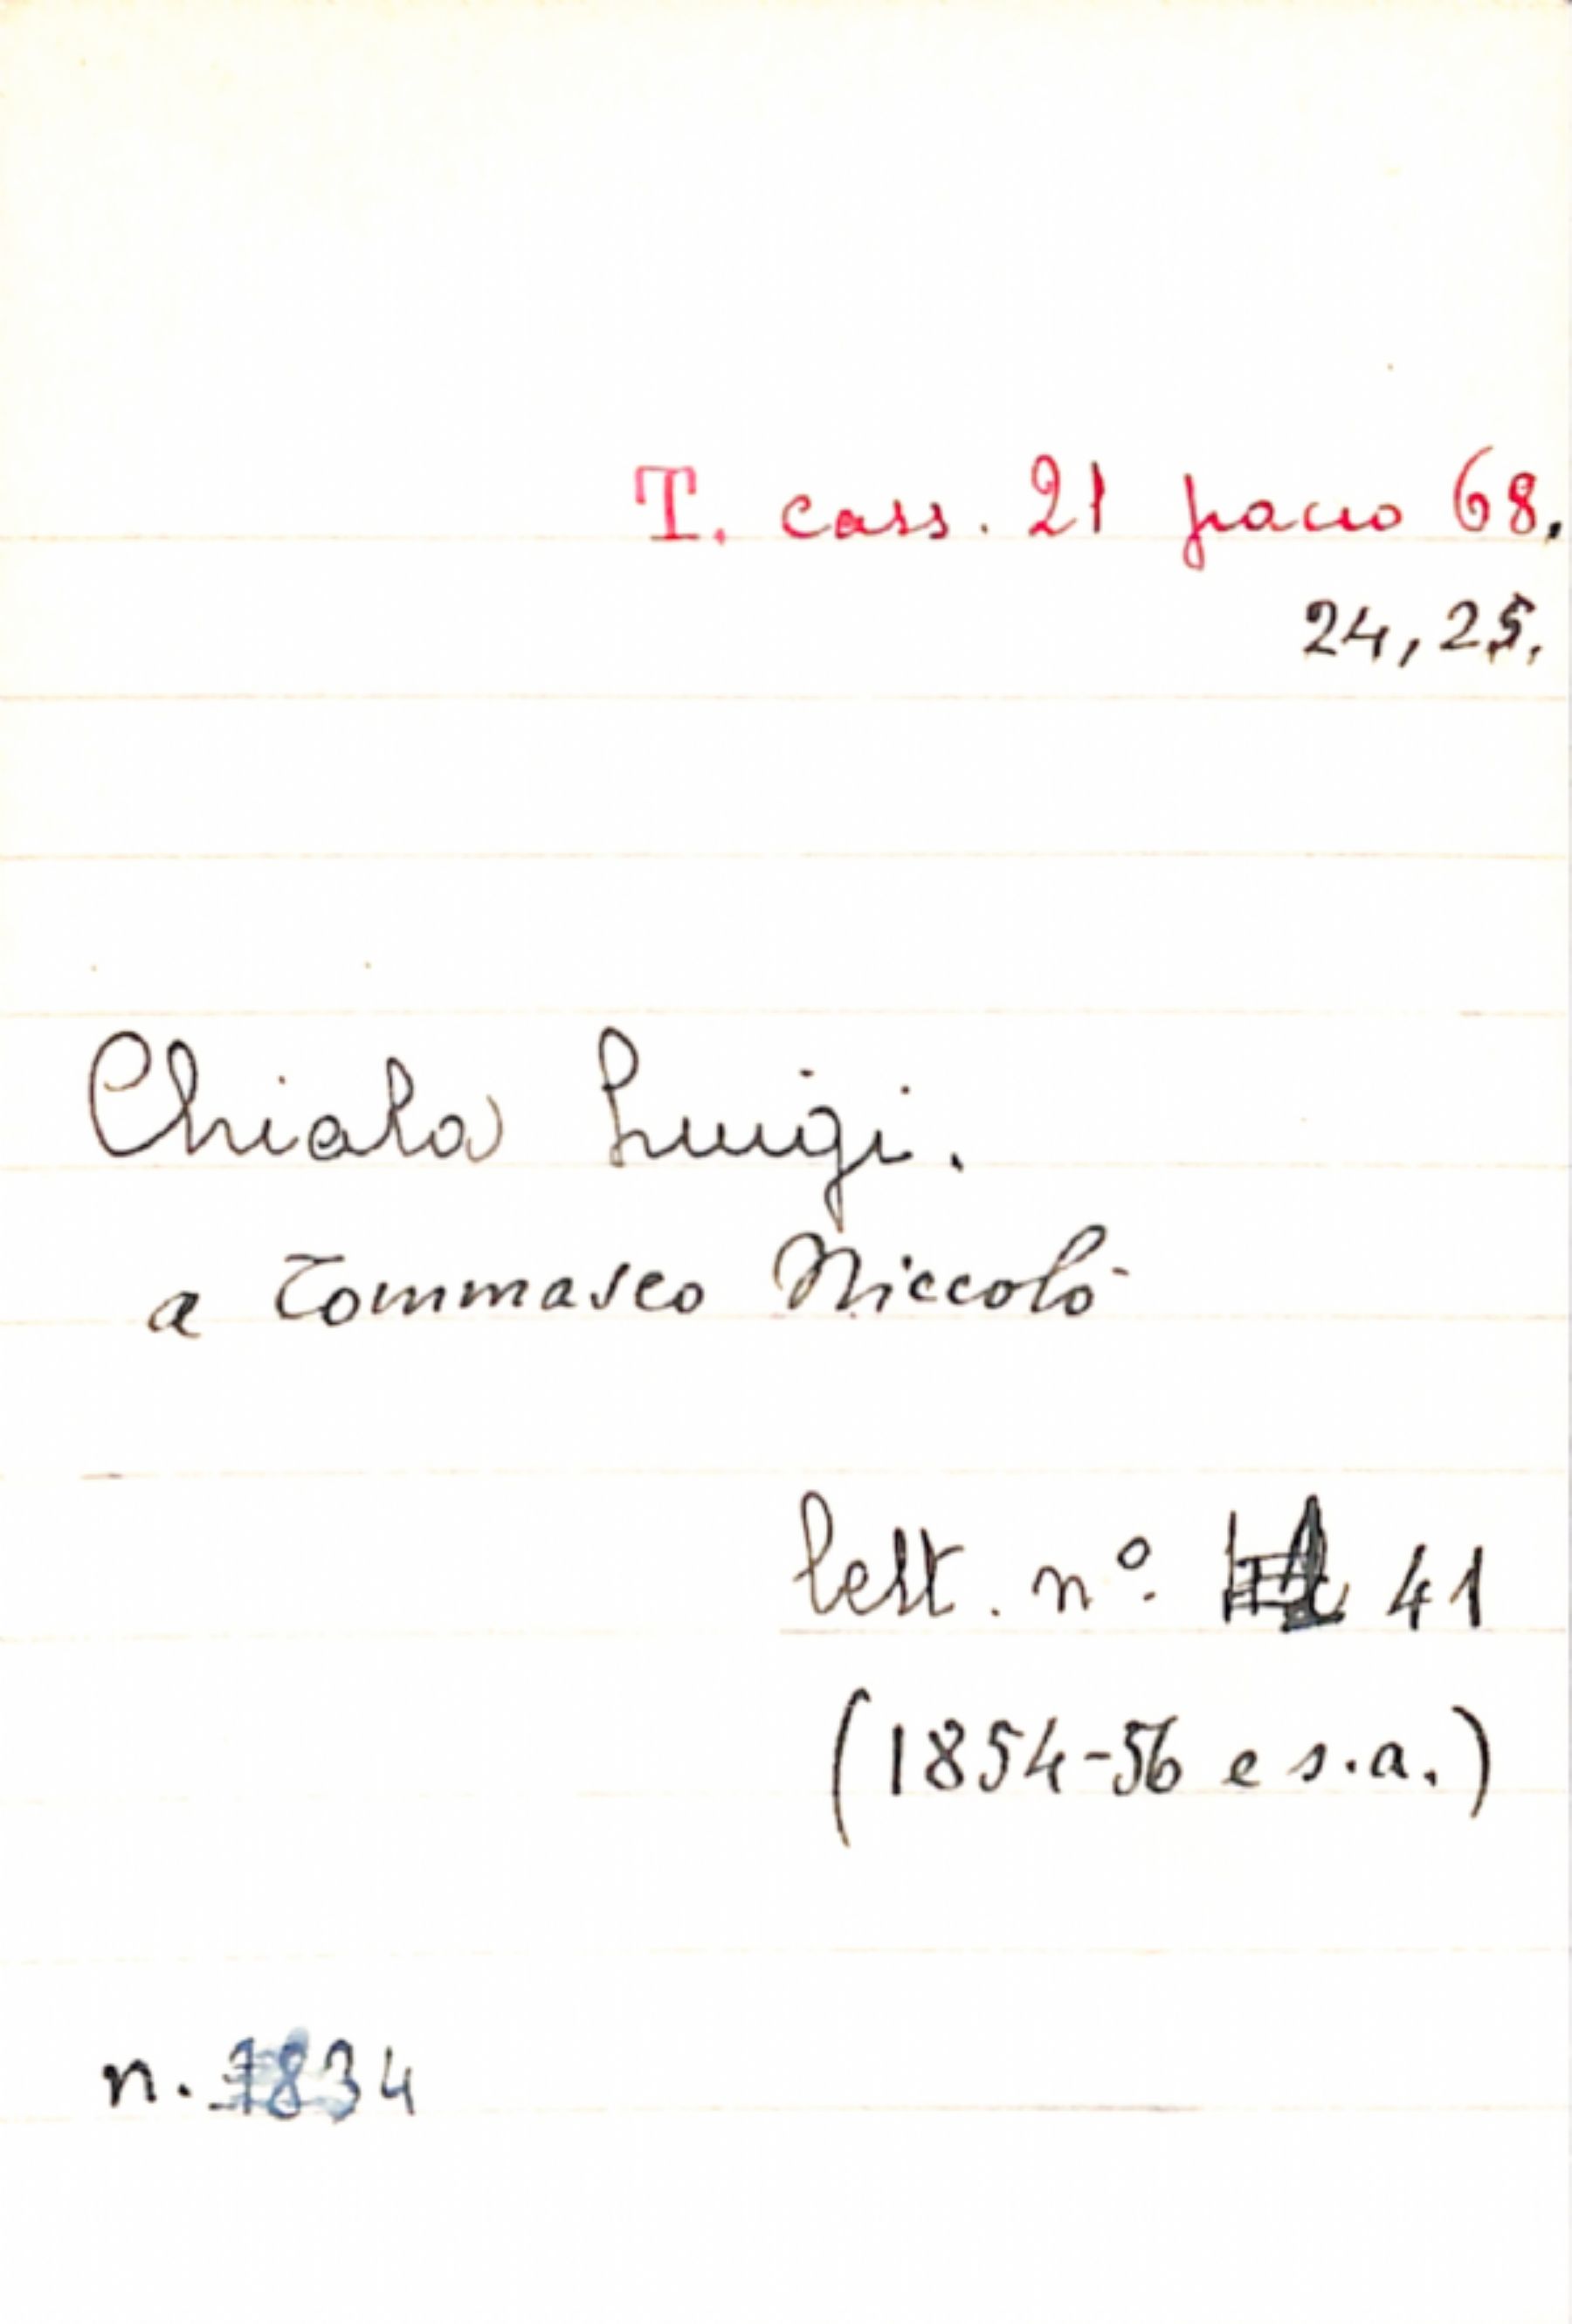 T. cass. 21 pacco 68.
24, 25.
Chiala Luigi.
a Tommaseo Niccolò
lett. nº. 41
(1854-56 e s.a.)
n. 1834